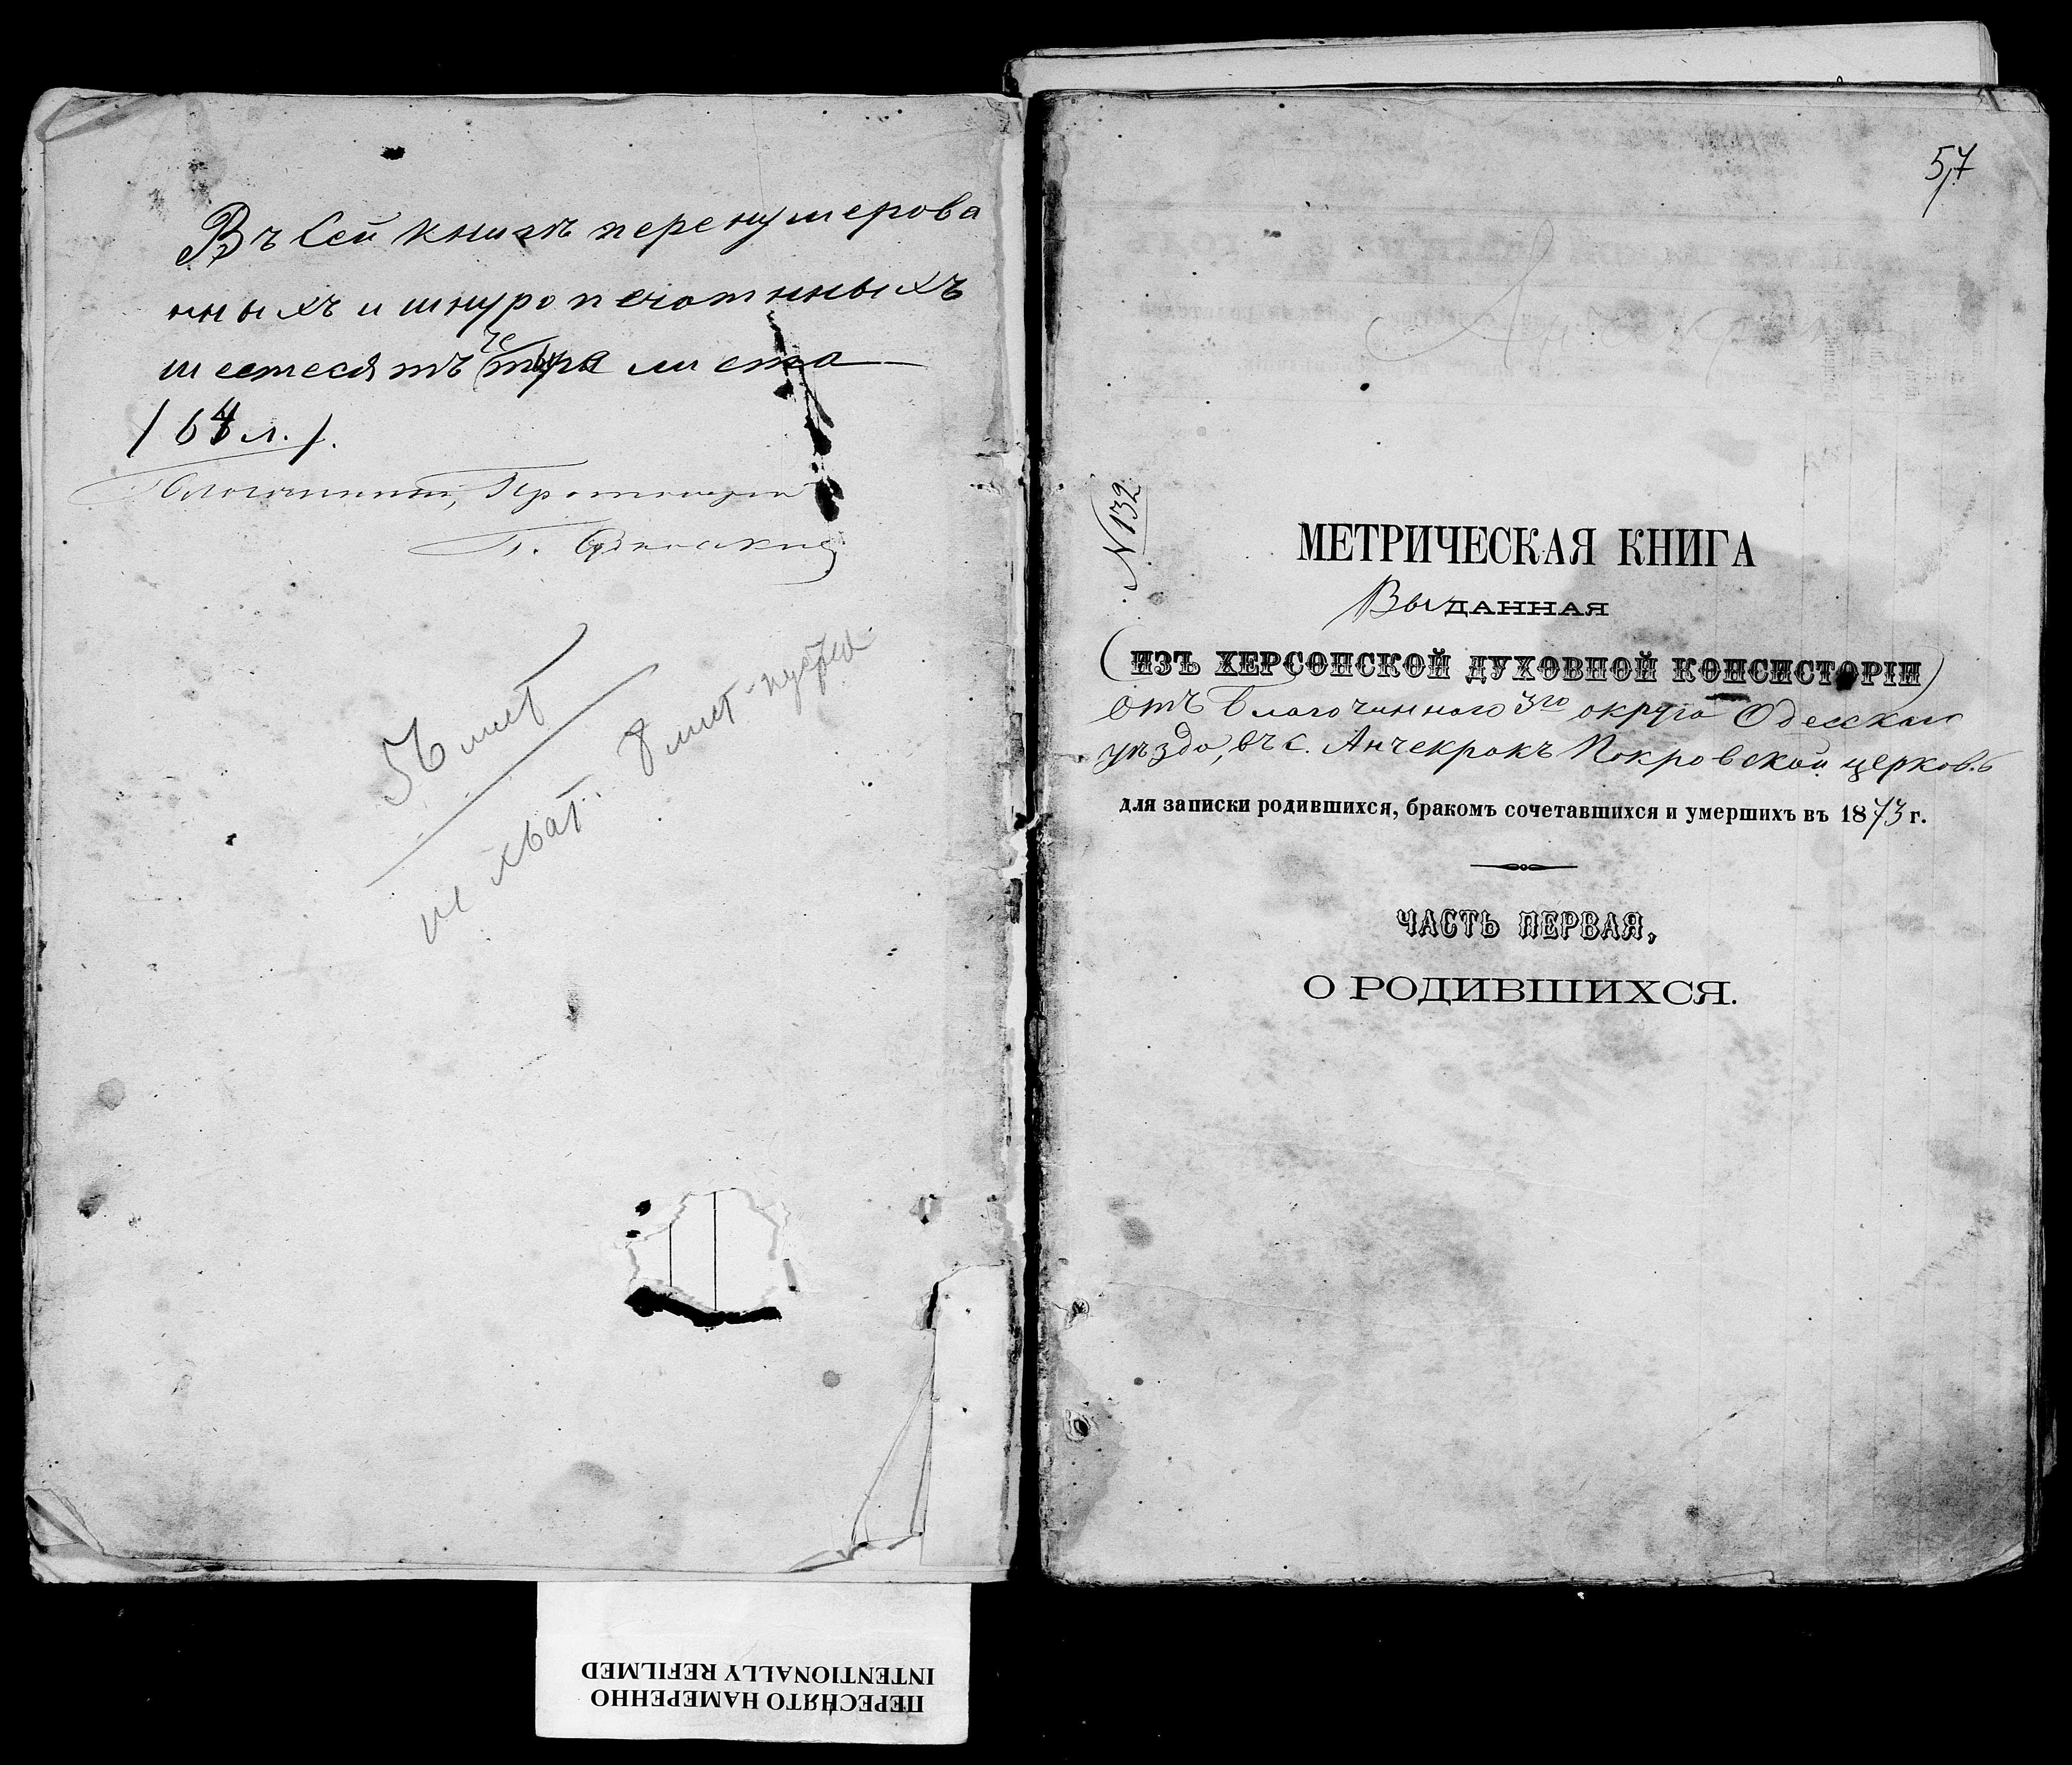 Въ сей книгѣ перенумерова
нныхъ и шнуропечатнныхъ
шестесятъ четыра листа
/64 л./.
Благочинный, Протоиерей
56 лист
не хват. 8 лист. пустые
ПЕРЕСНЯТО НАМЕРЕННО
INTENTIONALLY REFILMED
57
Анчекрак
N 132
МЕТРИЧЕСКАЯ КНИГА
Выданная
(ИЗЪ ХЕРСОНСКОЙ ДУХОВНОЙ КОНСИСТОРІИ)
отъ Благочинного 3го округа Одесскаго
уѣзда, въ с. Анчекракъ Покровской церковь
для записки родившихся, бракомъ сочетавшихся и умершихъ въ 1873 г.
ЧАСТЬ ПЕРВАЯ,
О РОДИВШИХСЯ.